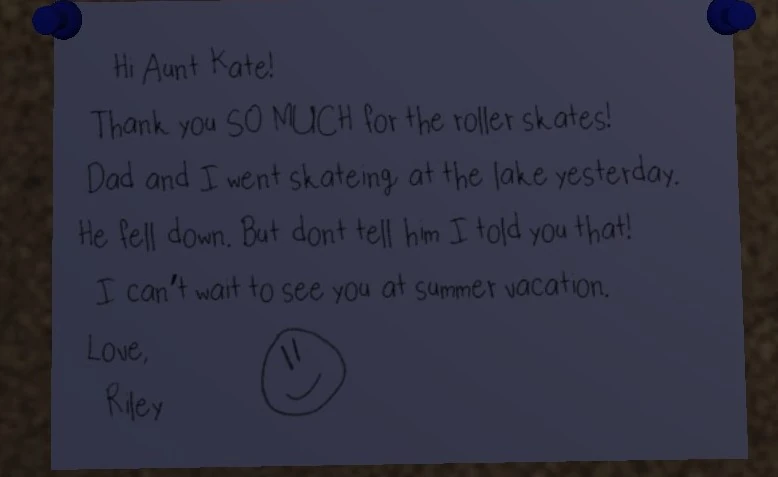 Hi Aunt Kate!
Thank you SO MUCH for the roller skates!
Dad and I went skateing at the lake yesterday.
He fell down. But dont tell him I told you that!
I can't wait to see you at summer vacation.
Love,
Riley